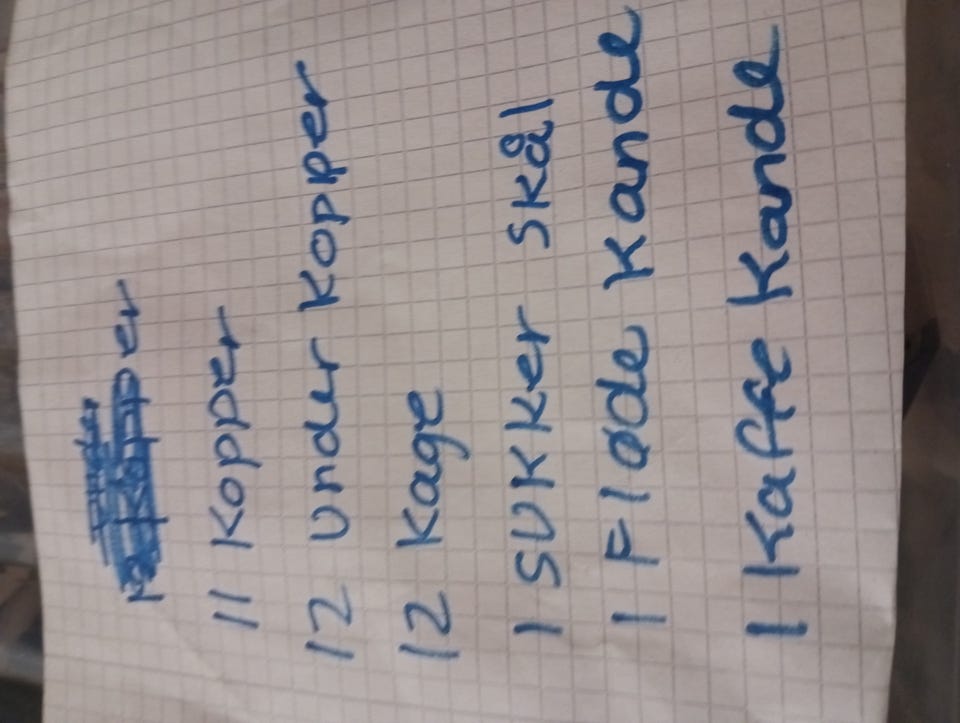 11 Kopper
12 Under Kopper
12 Kage
1 Sukker Skål
1 Fløde Kande
1 Kaffe Kande